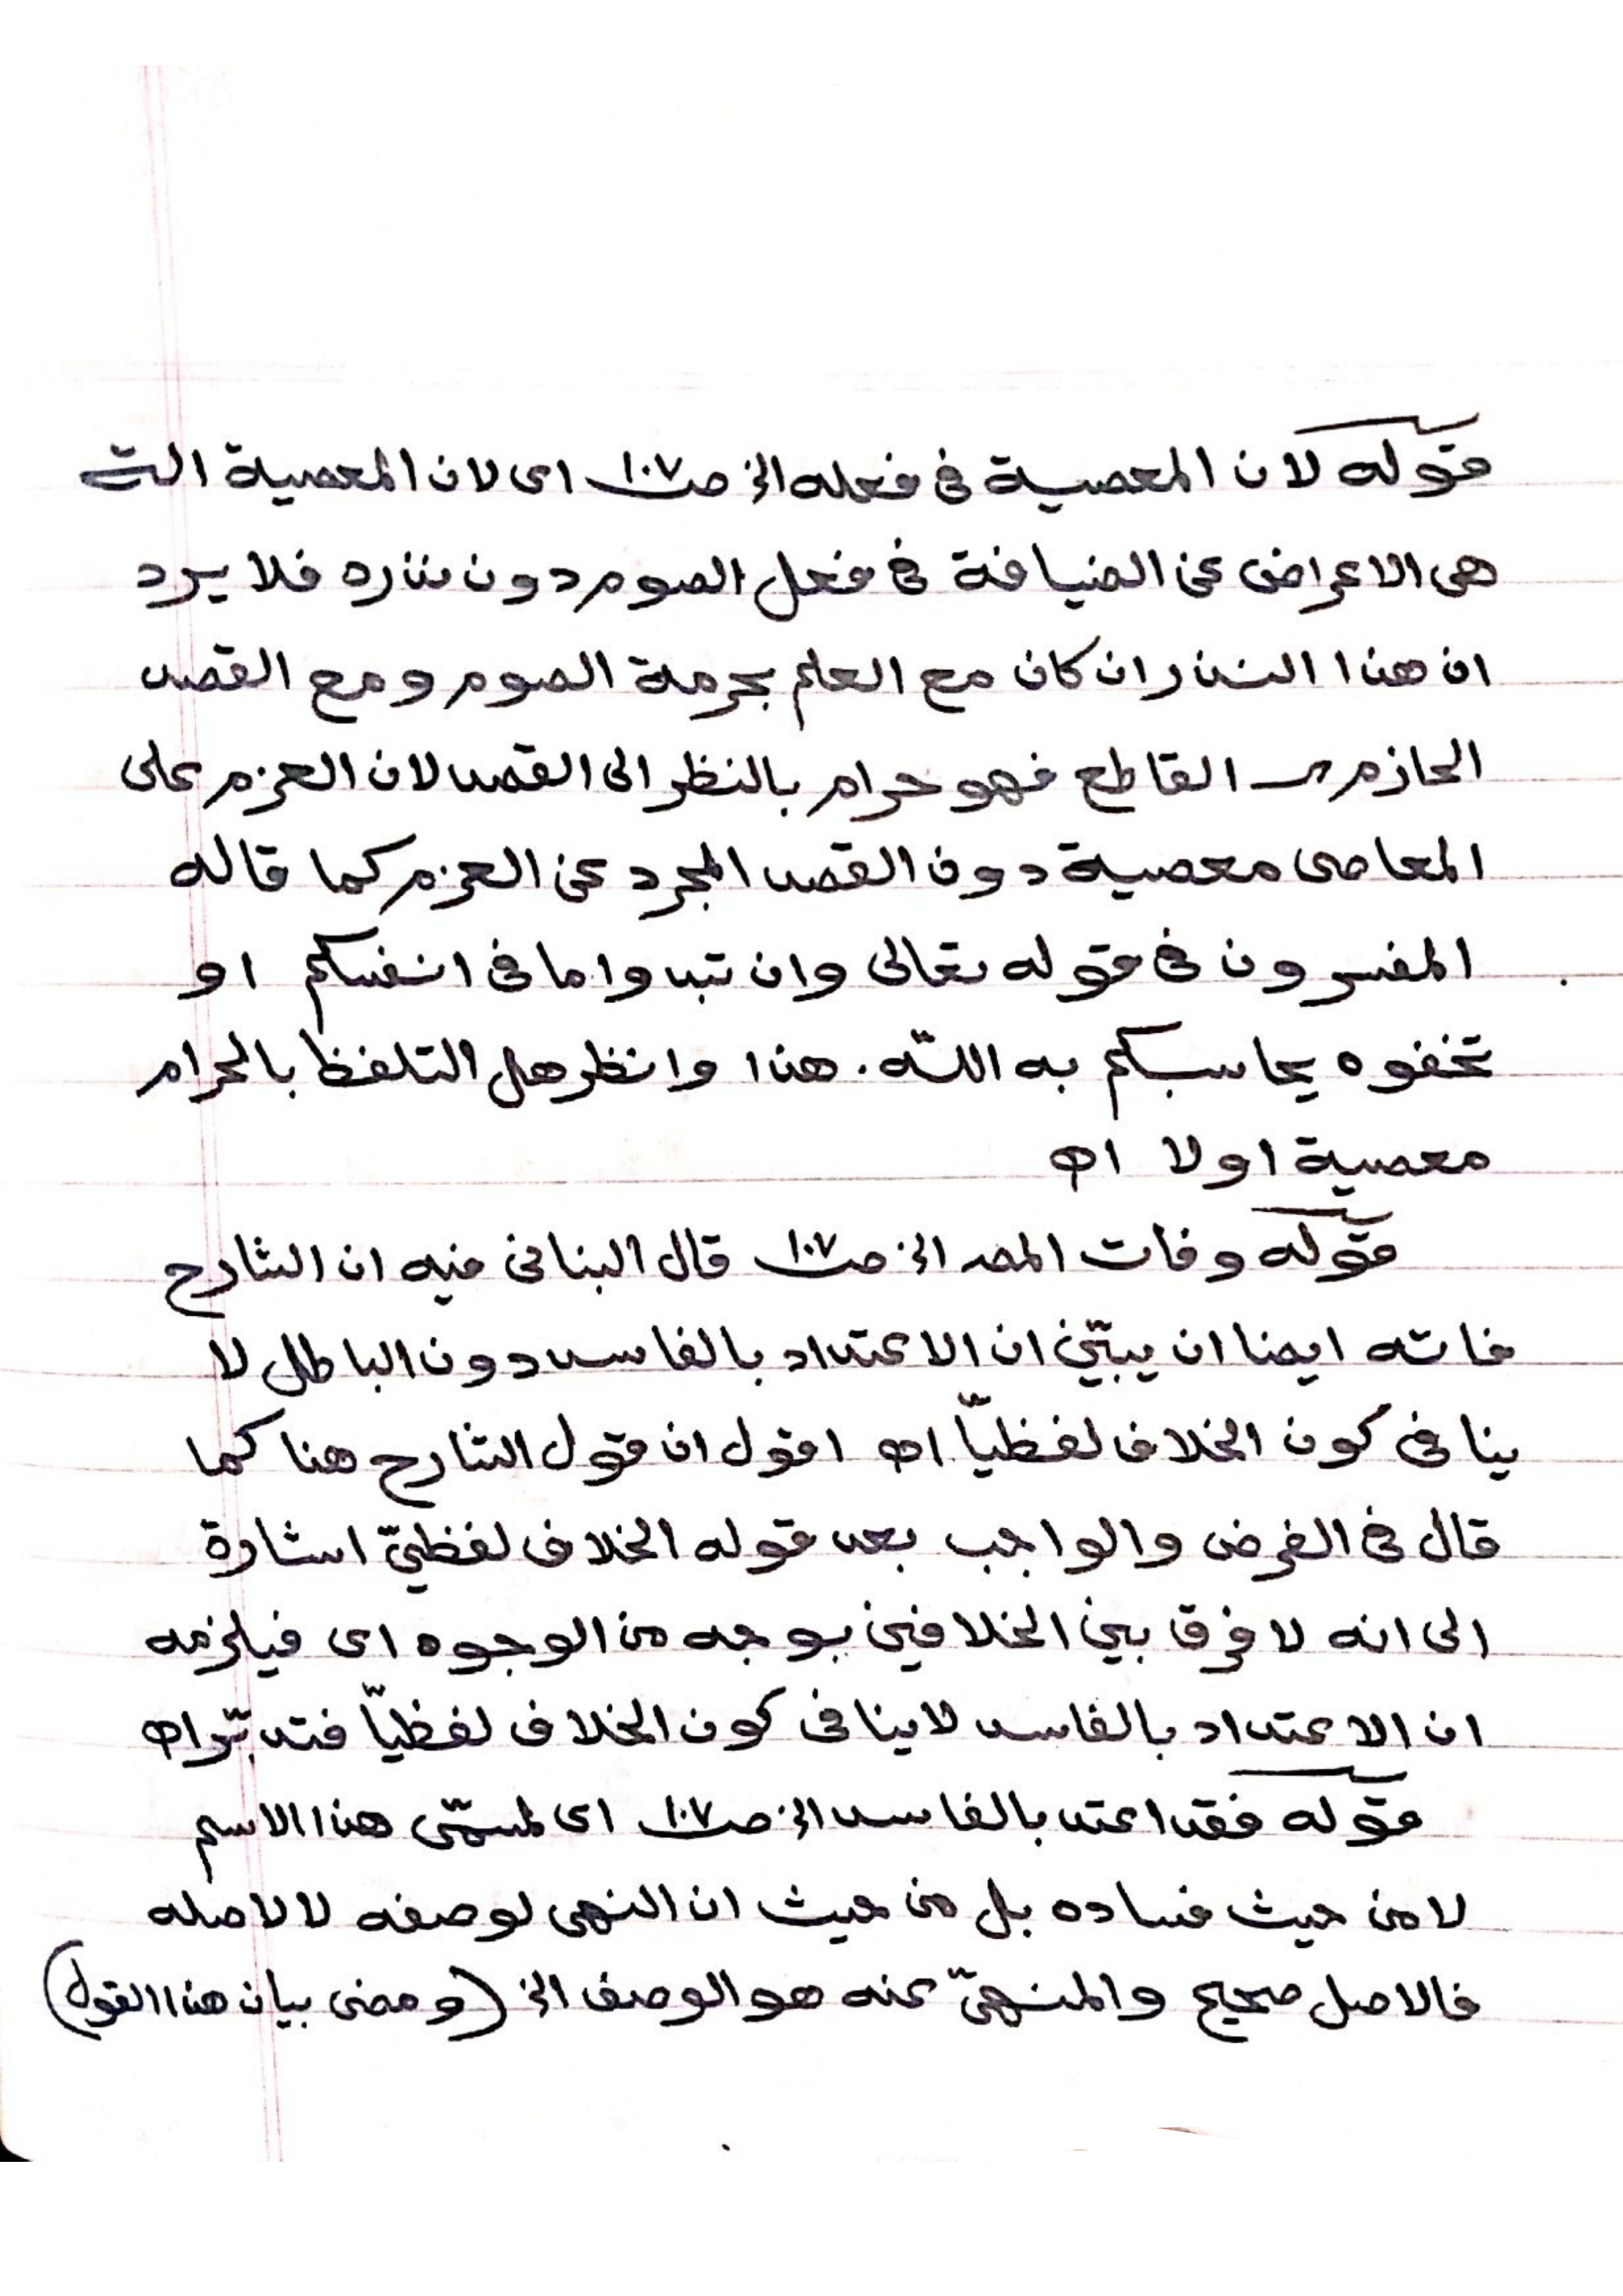 قوله لان المعصية فى فعله الخ صـ١٠٧ اى لان المعصية التى
هى الاعراض عن الضيافة فى فعل الصوم دون نذره فلا يرد
ان هذا النذر ان كان مع العلم بحرمة الصوم ومع القصد
الجازم القاطع فهو حرام بالنظر الى القصد لان العزم على
المعاصى معصية دون القصد المجرد عن العزم كما قاله
المفسرون فى قوله تعالى وان تبدوا ما فى انفسكم او
تخفوه يحاسبكم به اللّه. هذا وانظر هل التلفظ بالحرام
معصية او لا اهـ
قوله وفات المصـ الخ صـ١٠٧ قال البنانى فيه ان الشارح
فاته ايضا ان يبيّن ان الاعتداد بالفاسد دون الباطل لا
ينافى كون الخلاف لفظيّا اهـ اقول ان قول الشارح هنا كما
قال فى الفرض والواجب بعد قوله الخلاف لفظيّ اشارة
الى انه لا فرق بين الخلافين بوجه من الوجوه اى فيلزمه
ان الاعتداد بالفاسد لا ينافى كون الخلاف لفظيّا فتدبّر اهـ
قوله فقد اعتد بالفاسد الخ صـ١٠٧ اى لمسمّى هذا الاسم
لا من حيث فساده بل من حيث ان النهى لوصفه لا لاصله
فالاصل صحيح والمنهىّ عنه هو الوصف الخ (ومضى بيان هذا القول)